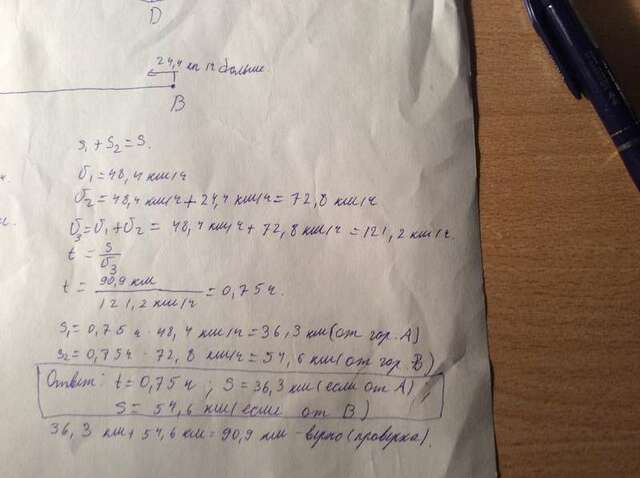 D
24,4 км/ч больше.
B
S₁ + S₂ = S.
υ₁ = 48,4 км/ч
υ₂ = 48,4 км/ч + 24,4 км/ч = 72,8 км/ч
υ₃ = υ₁ + υ₂ = 48,4 км/ч + 72,8 км/ч = 121,2 км/ч.
t = S/υ₃
t = 90,9 км / 121,2 км/ч = 0,75 ч.
S₁ = 0,75 ч · 48,4 км/ч = 36,3 км (от гор. A)
S₂ = 0,75 ч · 72,8 км/ч = 54,6 км (от гор. B)
Ответ: t = 0,75 ч ; S = 36,3 км (если от A) ;
S = 54,6 км (если от B)
36,3 км + 54,6 км = 90,9 км - верно (проверка).